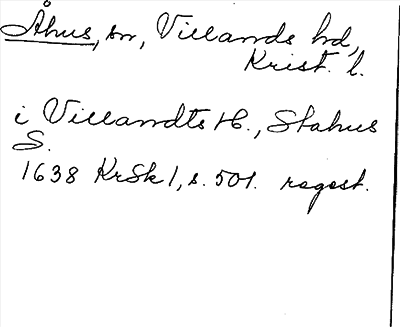 Åhus, sn, Villands hd,
Krist. l.
i Villandts H., Stahus
S.
1638 KrSk 1, s. 501. regest.